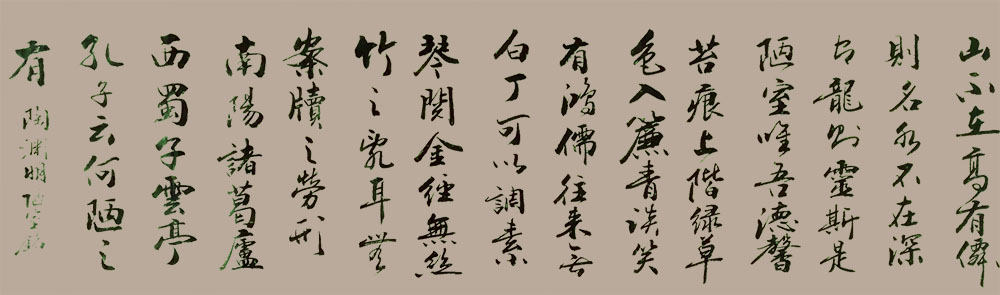 山不在高有僊
則名水不在深
有龍則靈斯是
陋室唯吾德馨
苔痕上階緑草
色入簾青談笑
有鴻儒往来无
白丁可以調素
琴閱金經無絲
竹之亂耳無
案牘之勞形
南陽諸葛廬
西蜀子雲亭
孔子云何陋之
有
陶渊明陋室銘